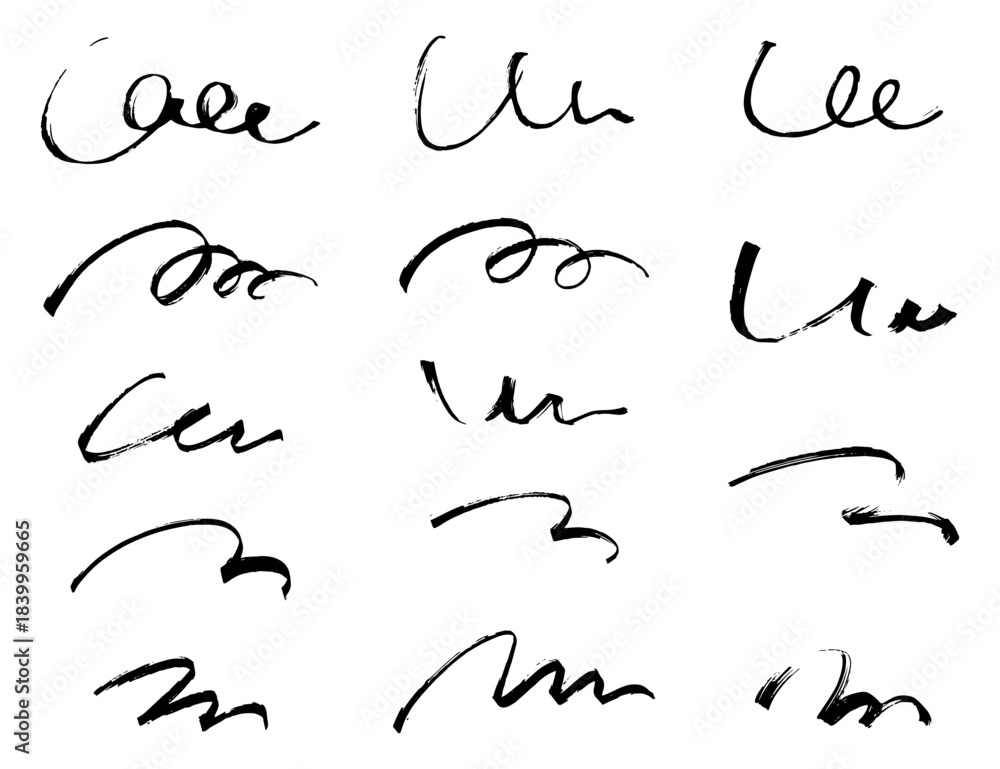 Adobe Stock | #1839959665